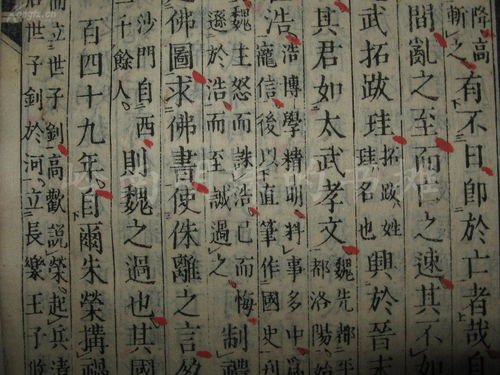 降高
斬之
有不日即於亡者哉自
間亂之至而亡之速其不如
武拓跋珪
拓跋姓
珪名也
興於晉末
其君如太武孝文
魏先都平
都洛陽始
浩
浩博學精明料事多中爲
寵信後以直筆作國史刊
魏主怒而誅浩已而悔
遜於浩而至誠過之
制禮
之佛圖求佛書使侏離之言
沙門自西
二千餘人
則魏之過也其國
百四十九年自爾朱榮搆禍
而立世子釗高歡說榮起兵清
后世子釗於河立長樂王子攸